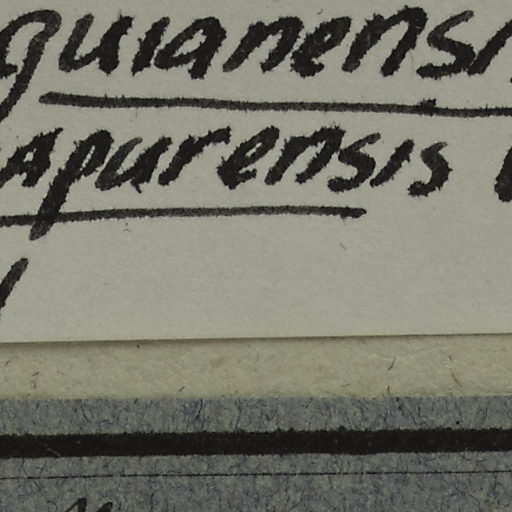 guianens
apurensis